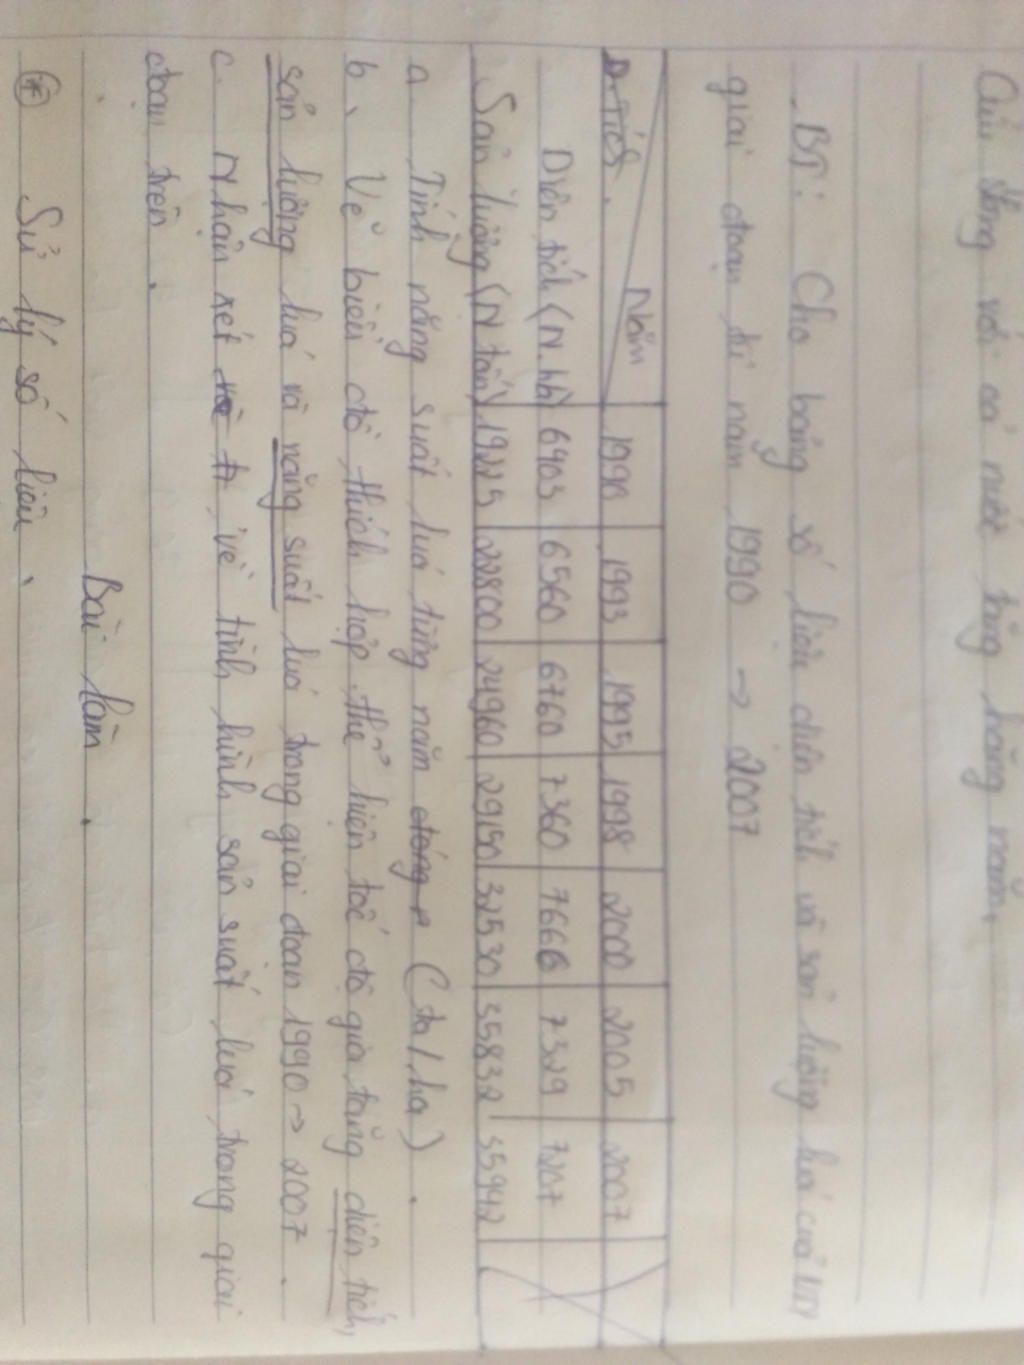 Cửu Long với cả nước tăng hằng năm.
BT: Cho bảng số liệu diện tích và sản lượng lúa của VN
giai đoạn từ năm 1990 -> 2007
D.tích. Năm 1990 1993 1995 1998 2000 2005 2007
Diện tích (N.ha) 6403 6560 6760 7360 7666 7329 7207
Sản lượng (N tấn) 19225 22800 24960 29150 32530 35832 35942
a Tính năng suất lúa từng năm (tạ/ha).
b, Vẽ biểu đồ thích hợp thể hiện tốc độ gia tăng diện tích,
sản lượng lúa và năng suất lúa trong giai đoạn 1990 -> 2007.
c. Nhận xét về tình hình sản suất lúa trong giai
đoạn trên.
Bài làm.
* Sử lý số liệu.